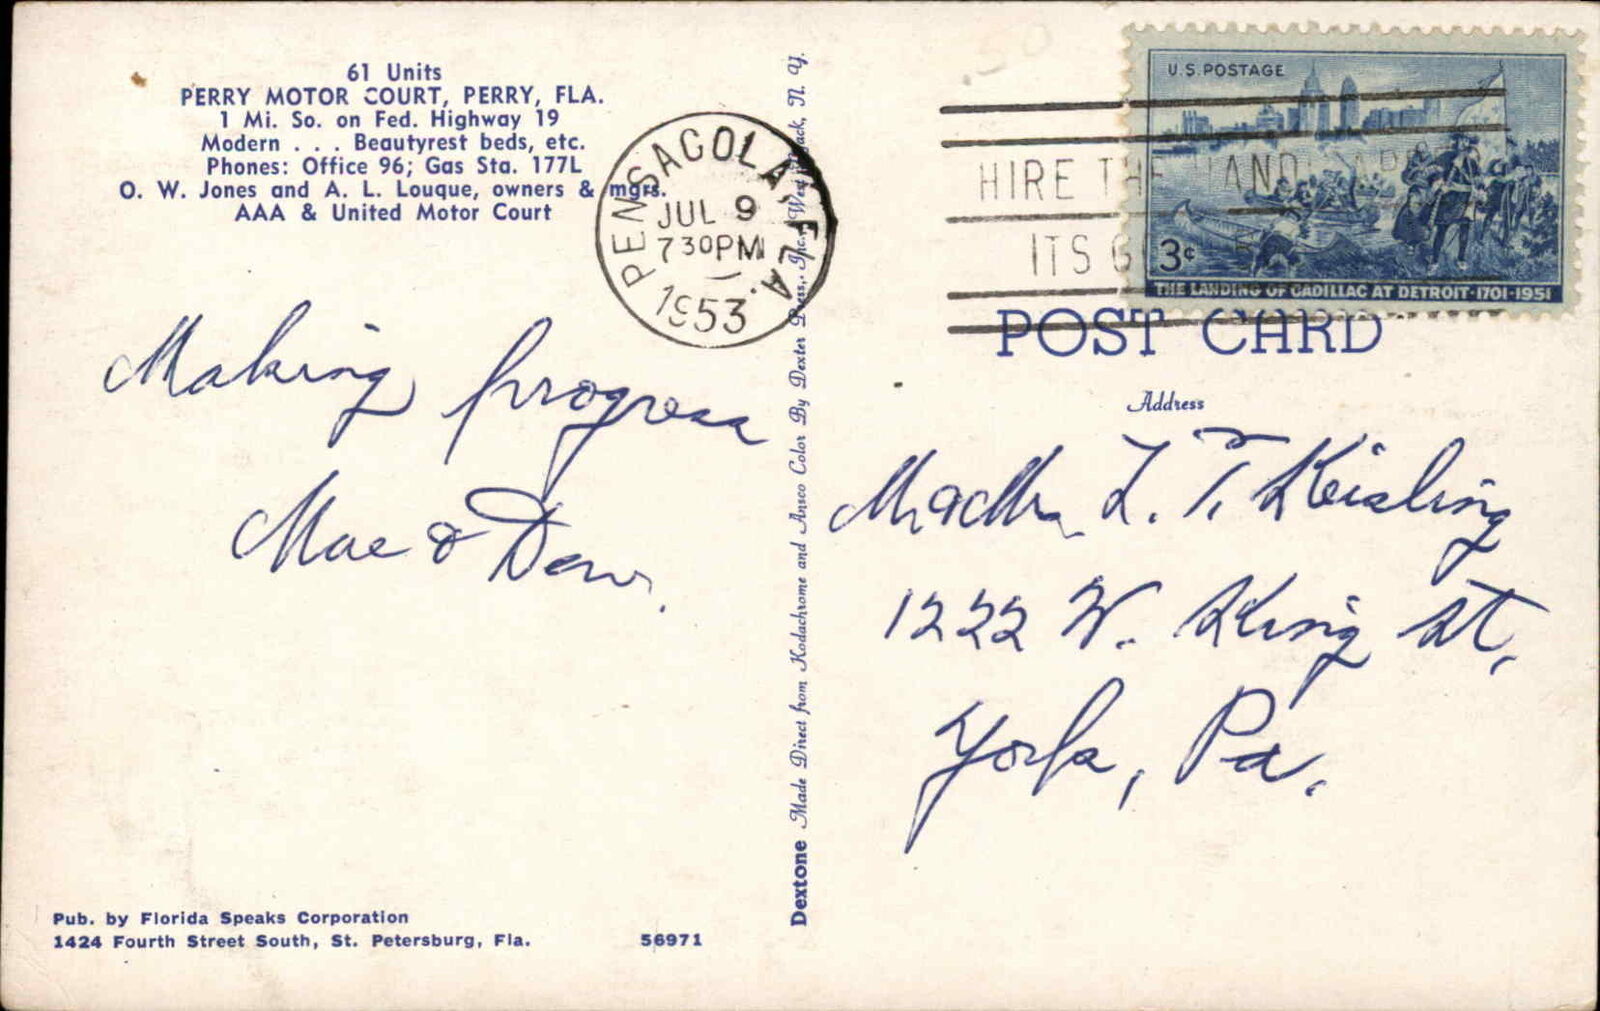 61 Units
PERRY MOTOR COURT, PERRY, FLA.
1 Mi. So. on Fed. Highway 19
Modern . . . Beautyrest beds, etc.
Phones: Office 96; Gas Sta. 177L
O. W. Jones and A. L. Louque, owners & mgrs.
AAA & United Motor Court
PENSACOLA, FLA.
JUL 9
730PM
1953
Making progress
Mae & Dew.
Pub. by Florida Speaks Corporation
1424 Fourth Street South, St. Petersburg, Fla.
56971
Dextone Made Direct from Kodachrome and Ansco Color By Dexter Press, Inc., West Nyack, N. Y.
U.S. POSTAGE
3¢
THE LANDING OF CADILLAC AT DETROIT·1701-1951
HIRE THE HANDICAPPED
ITS G
POST CARD
Address
L. T. Keisling
1222 W. King St,
York, Pa.